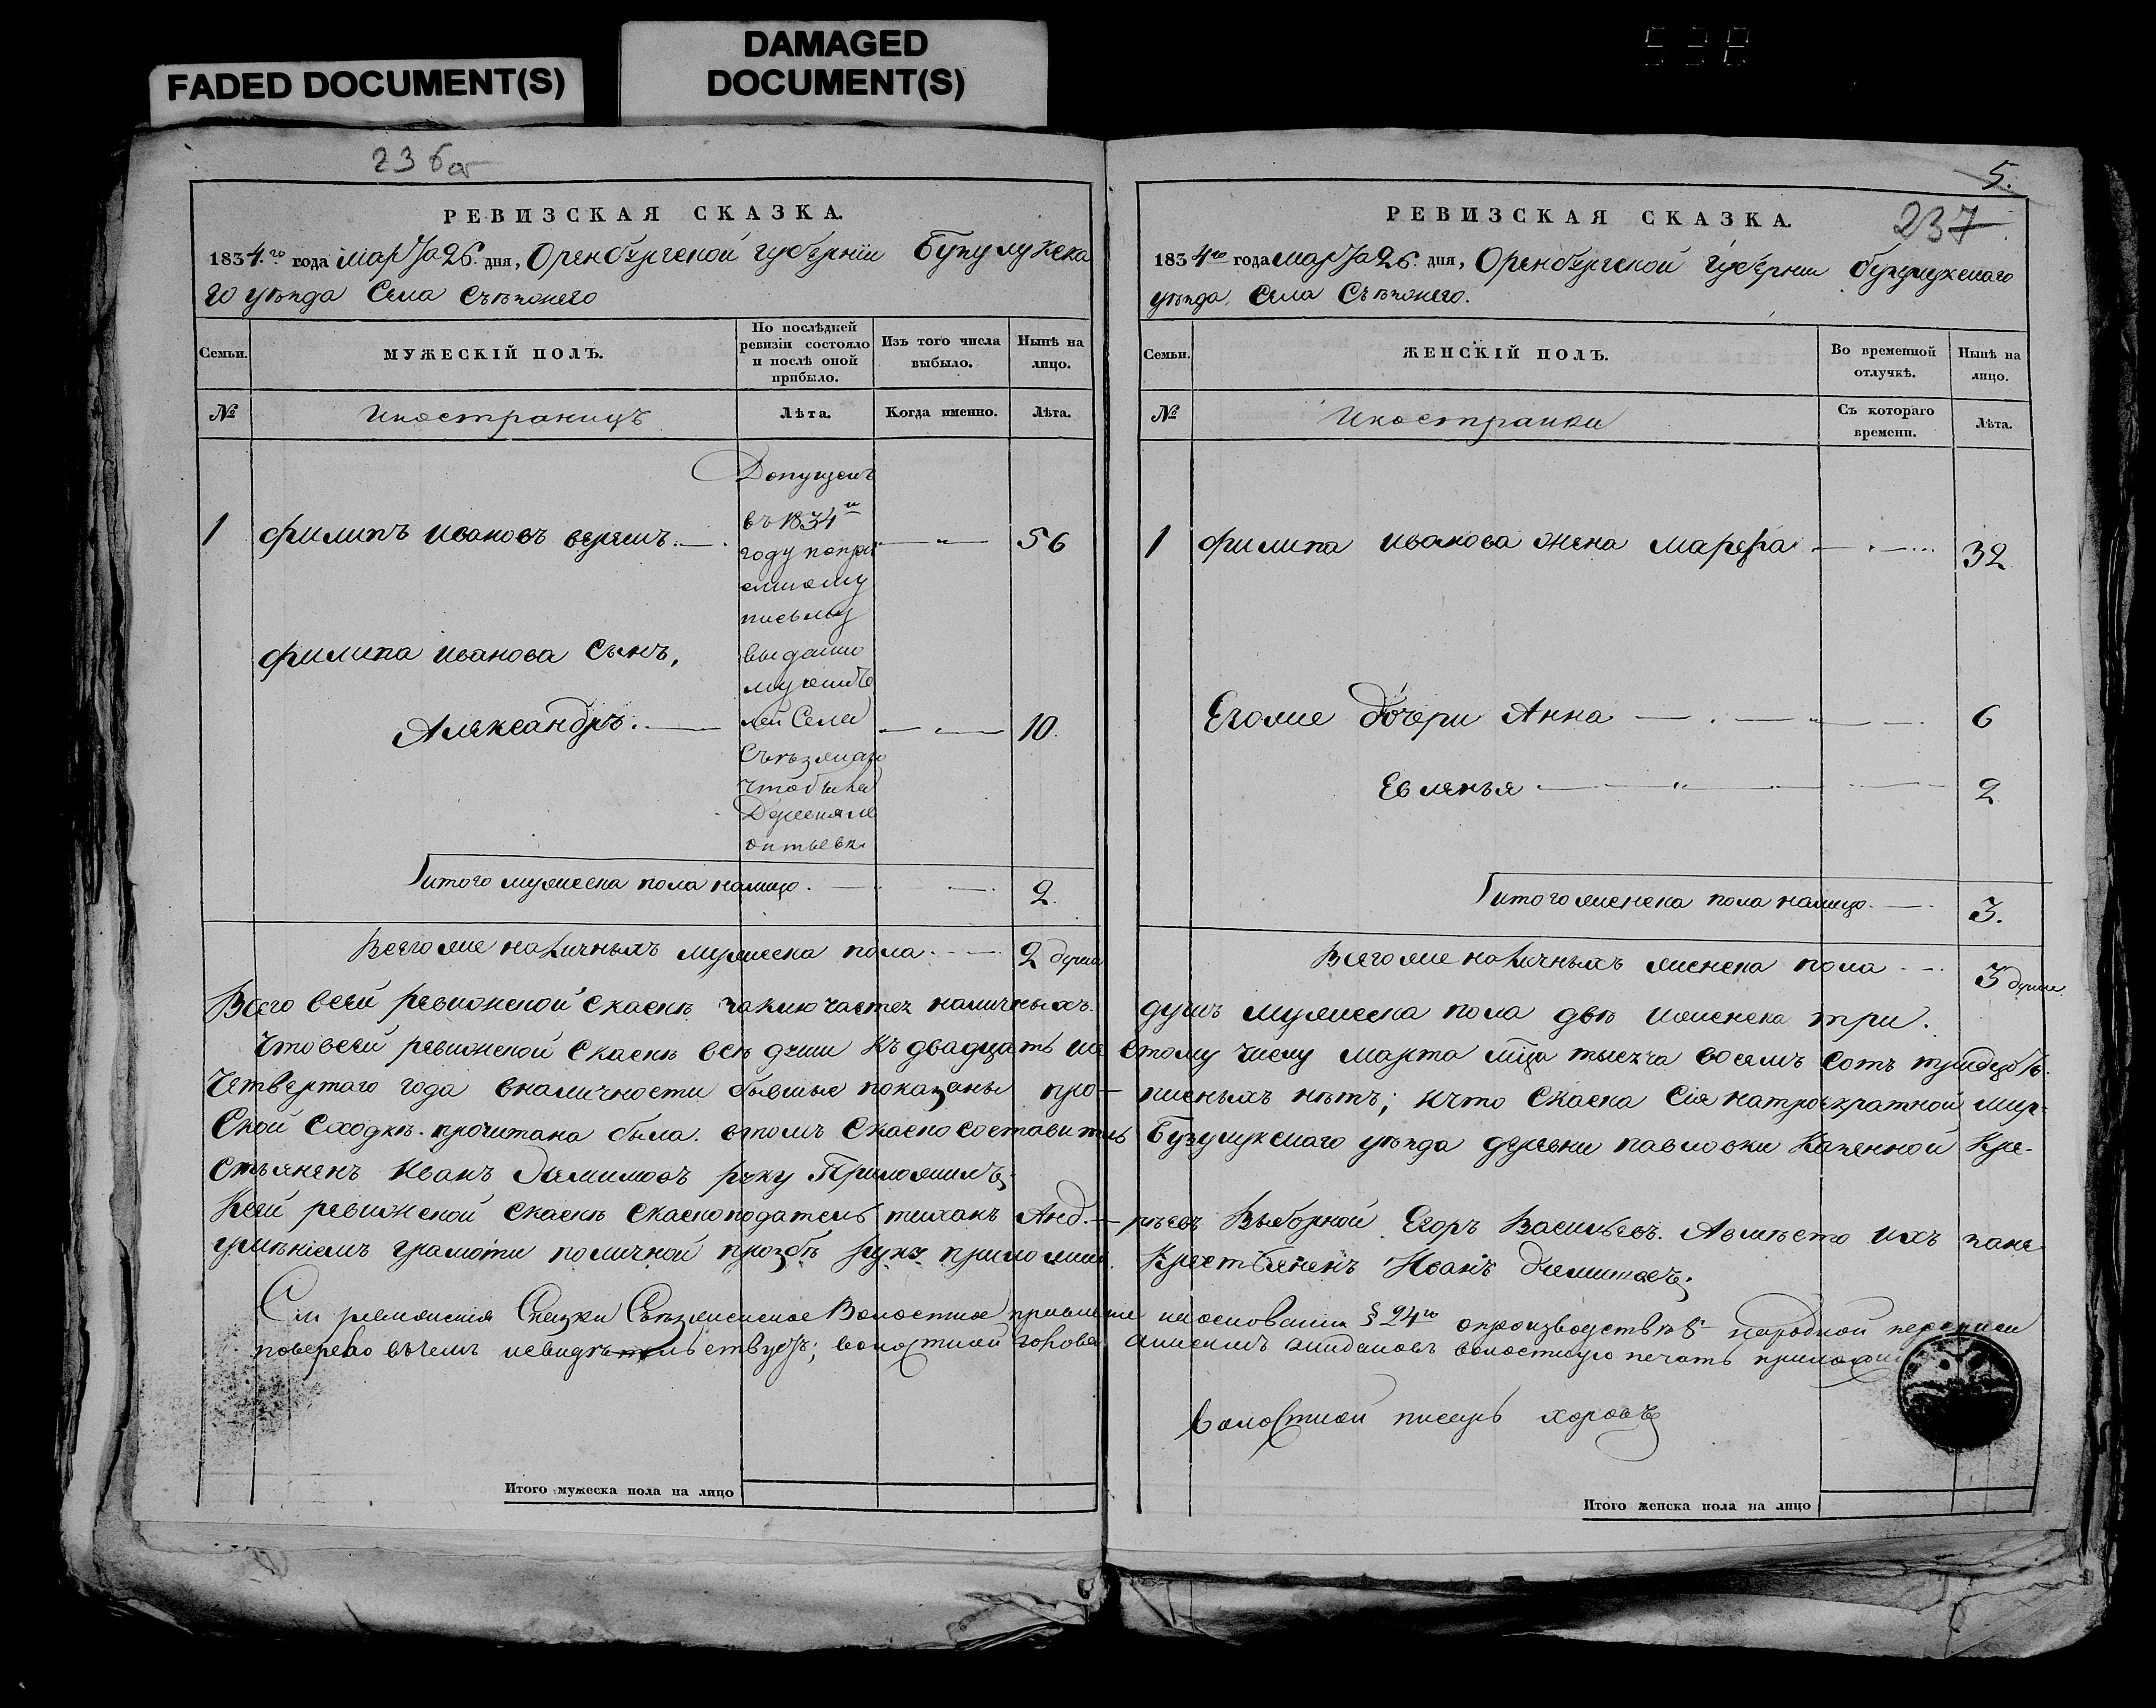 FADED DOCUMENT(S)
DAMAGED
DOCUMENT(S)
236 об
РЕВИЗСКАЯ СКАЗКА.
1834.го года Марта 26. дня, Оренбургской губернiи Бузулукска
го уѣзда Села Съѣзжего
Семьи.
МУЖЕСКIЙ ПОЛЪ.
По послѣдней
ревизiи состояло
и послѣ оной
прибыло.
Изъ того числа
выбыло.
Нынѣ на
лицо.
№
Иностранцъ
Лѣта.
Когда именно.
Лѣта.
Допущенъ
въ 1834м
году попри
емному
письму
выданно
му
лей Села
чтобыла
Деревня
1 Филипъ Ивановъ 56
Филипа Иванова Сынъ,
Александръ. 10.
итого мужеска пола налицо. 2.
Всего же наличныхъ мужеска пола 2 души
5.
237
РЕВИЗСКАЯ СКАЗКА.
1834го года Марта 26. дня, Оренбургской губернiи бузулукскаго
уѣзда. Села Съѣзжего.
Семьи.
ЖЕНСКIЙ ПОЛЪ.
Во временной
отлучкѣ.
Нынѣ на
лицо.
№
Иностранки
Съ котораго
времени.
Лѣта.
1 Филипа Иванова жена Марфа 32
Егоже дочери Анна 6
Евленья 2
итого женска пола налицо. 3.
Всего же наличныхъ женска пола 3 души.
Всего всей ревижской скаскѣ заключаетсѧ наличныхъ душъ мужеска пола двѣ иженска три.
Что всей ревижской скаскѣ всѣ души къ двадцать ше стому числу марта мца тысеча восемъ сотъ тридцать
Четвертаго года вналичности бывшые показаны про- писныхъ нѣтъ; ичто скаска сiя натроекратной мир-
ской сходкѣ. прочитана была. втомъ скаско составитель Бузулукскаго уѣзда деревни павловки Казенной кре-
стьяненъ Иванъ руку Приложилъ;
Ксей ревижской скаскѣ скаскоподатель тиханъ Анд.- рѣевъ Выборной Егоръ Васильевъ. Авмѣсто ихъ зане
умѣнiемъ грамоти поличной прозбѣ руку приложилъ. Крестьяненъ Иванъ
Сiя ревижския Сказки Волостное правленiе наоснованiи § 24го опроизводствѣ 8й народной переписи
поверено вчемъ исвидѣтельствуетъ; волостной голова волостную печать приложилъ
Волостной писарь
Итого мужеска пола на лицо
Итого женска пола на лицо